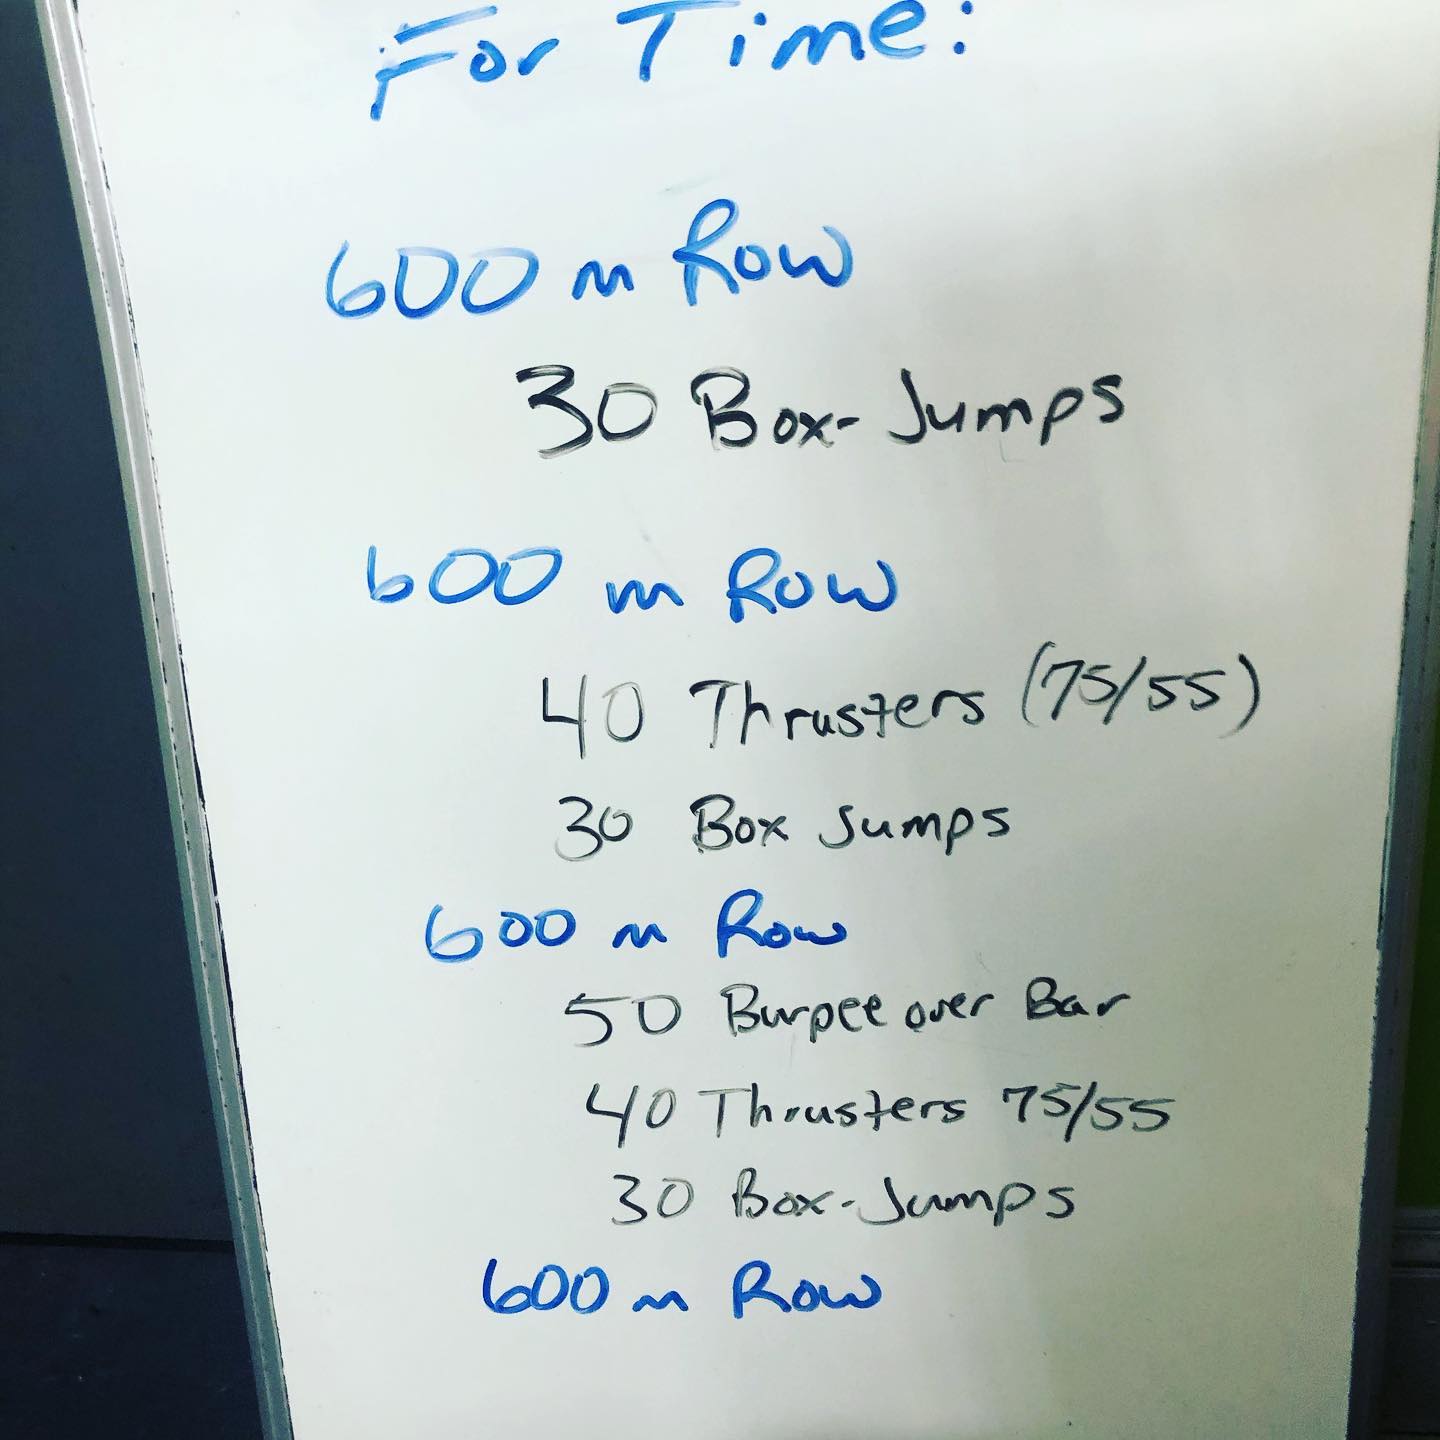 For Time:
600 m Row
30 Box-Jumps
600 m Row
40 Thrusters (75/55)
30 Box Jumps
600 m Row
50 Burpee over Bar
40 Thrusters 75/55
30 Box-Jumps
600 m Row